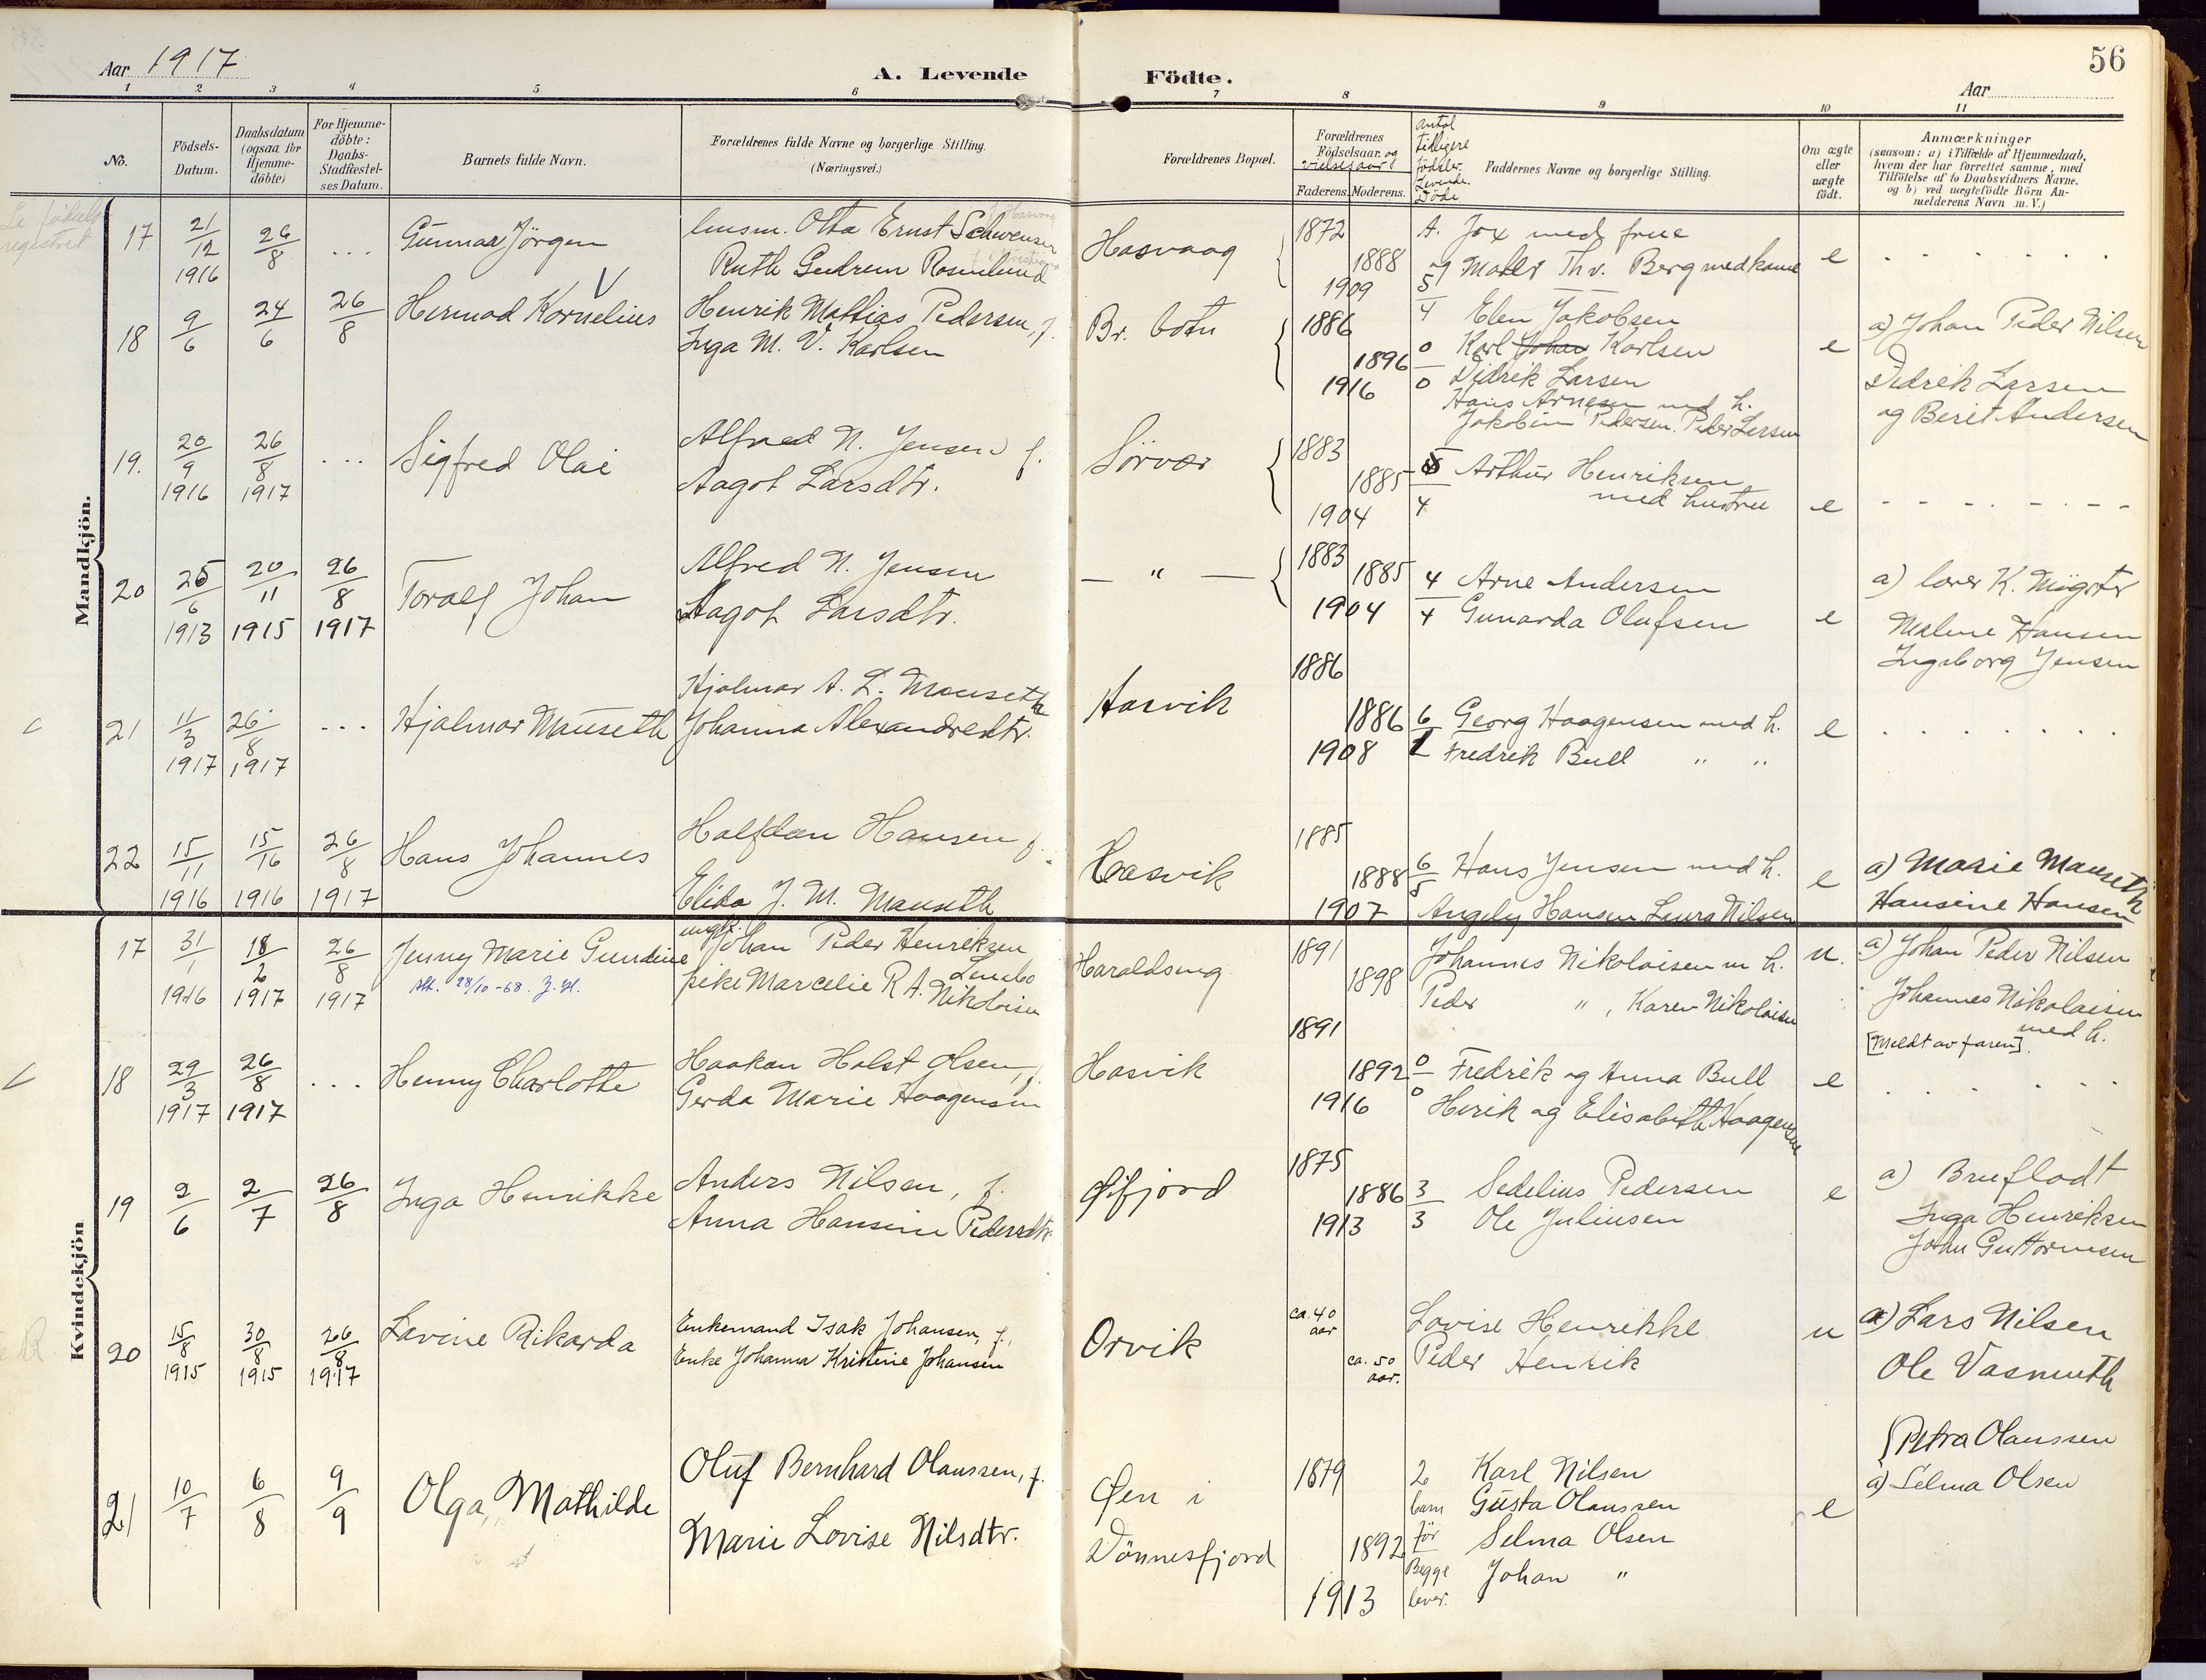 56
Aar 1917
A. Levende Födte.
Aar
1 2 3 4 5 6 7 8 9 10 11
No.
Födsels-
Datum.
Daabsdatum
(ogsaa for
Hjemme-
döbte)
For Hjemme-
döbte:
Daabs-
Stadfæstel-
ses Datum.
Barnets fulde Navn.
Forældrenes fulde Navne og borgerlige Stilling.
(Næringsvei.)
Forældrenes Bopæl.
Forældrenes
Födselsaar. og
vielsesaar
Faderens. Moderens.
Antal
tidligere
födsler.
Levende.
Döde
Faddernes Navne og borgerlige Stilling.
Om ægte
eller
uægte
födt.
Anmærkninger
(saasom: a) i Tilfælde af Hjemmedaab,
hvem der har forrettet samme, med
Tilföielse af to Daabsvidners Navne.
og b) ved uægtefödte Börn An-
melderens Navn m. V.)
Mandkjön.
17
21/12 1916
26/8
...
Gunnar Jörgen
lensm. Otto Ernst Schwenser
Ruth Gudrun Rosenlund
Hasvaag
1872
1888
1909
A. Jox med frue
og Maler Thv. Berg med kone
5
4
e
18
9/6
24/6
26/8
Hermod Kornelius
Henrik Mathias Pedersen, f.
Inga M. V. Karlsen
Br. botn
1886
1896
1916
0
0
Elen Jakobsen
Karl Johan Karlsen
Didrik Larsen
Hans Arnesen med h.
Jakobine Pedersen. Peder Larsen
e
a) Johan Peder Nilsen
Didrik Larsen
og Berit Andersen
19.
20/9 1916
26/8 1917
...
Sigfred Olai
Alfred N. Jensen f.
Aagot Larsdtr.
Sörvær
1883
1885
1904
5
4
Arthur Henriksen
med hustru
e
20
25/6 1913
20/11 1915
26/8 1917
Toralf Johan
Alfred N. Jensen
Aagot Larsdtr.
— " —
1883
1885
1904
4
4
Arne Andersen
Gunarda Olufsen
e
a) lærer K.
Malene Hansen
Ingeborg Jensen
21
11/3 1917
26/8 1917
...
Hjalmar Mauseth
Hjalmar A. L. Mauseth
Johanna Alexandredtr.
Hasvik
1886
1886
1908
6
1
Georg Haagensen med h.
Fredrik Bull " "
e
22
15/11 1916
15/16 1916
26/8 1917
Hans Johannes
Halfdan Hansen f.
Elida J. M. Mauseth
Hasvik
1885
1888
1907
6
5
Hans Jensen med h.
Angely Hansen Laura Nilsen
e
a) Marie Mauseth
Hansine Hansen
Kvindekjön
17
31/1 1916
18/2 1917
26/8 1917
Jenny Marie Gundine
Att. 28/10-68.
ungk. Johan Peder Henriksen
pike Marcelie R A. Nikolaisen
Haraldseng
1891
1898
Johannes Nikolaisen m h.
Peder " , Karen Nikolaisen
u.
a) Johan Peder Nilsen
Johannes Nikolaisen
med h.
[Meldt av faren].
18
29/3 1917
26/8 1917
...
Henny Charlotte
Haakon Holst Olsen, f.
Gerda Marie Haagensen
Hasvik
1891
1892
1916
0
0
Fredrik og Anna Bull
Henrik og Elisabeth Haagensen
e
19
2/6
2/7
26/8
Inga Henrikke
Anders Nilsen, f.
Anna Hansine Pedersdtr.
Öfjord
1875
1886
1913
3
3
Sedelius Pedersen
Ole Juliusen
e
a) Bruflodt
Inga Henriksen
Johan Guttormsen
20
15/8 1915
30/8 1915
26/8 1917
Lavine Rikarda
Enkemand Isak Johansen, f.,
Enke Johanna Kristine Johansen
Orvik
ca. 40
aar
ca. 50
aar.
Lovise Henrikke
Peder Henrik
u
a) Lars Nilsen
Ole Vasmuth
21
10/7
6/8
9/9
Olga Mathilde
Oluf Bernhard Olaussen, f.
Marie Lovise Nilsdtr.
Öen i
Dönnesfjord
1879
1892
1913
2
barn
för
Begge
lever.
Karl Nilsen
Gusta Olaussen
Selma Olsen
Johan "
e
Petra Olaussen
a) Selma Olsen